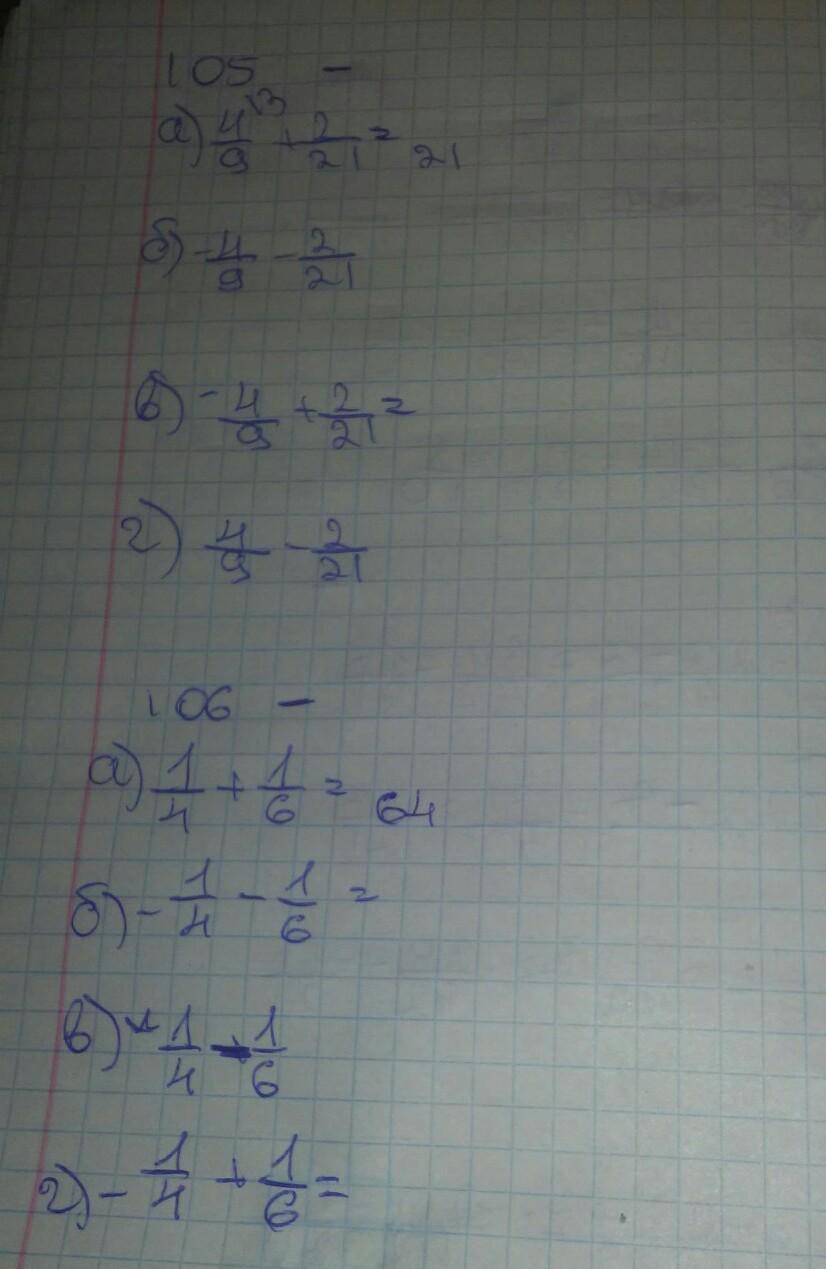 105 -
а) 4/9 \3 + 2/21 = 21
б) -4/9 - 2/21
в) -4/9 + 2/21 =
г) 4/9 - 2/21
106 -
а) 1/4 + 1/6 = 64
б) -1/4 - 1/6 =
в) 1/4 - 1/6
г) -1/4 + 1/6 =